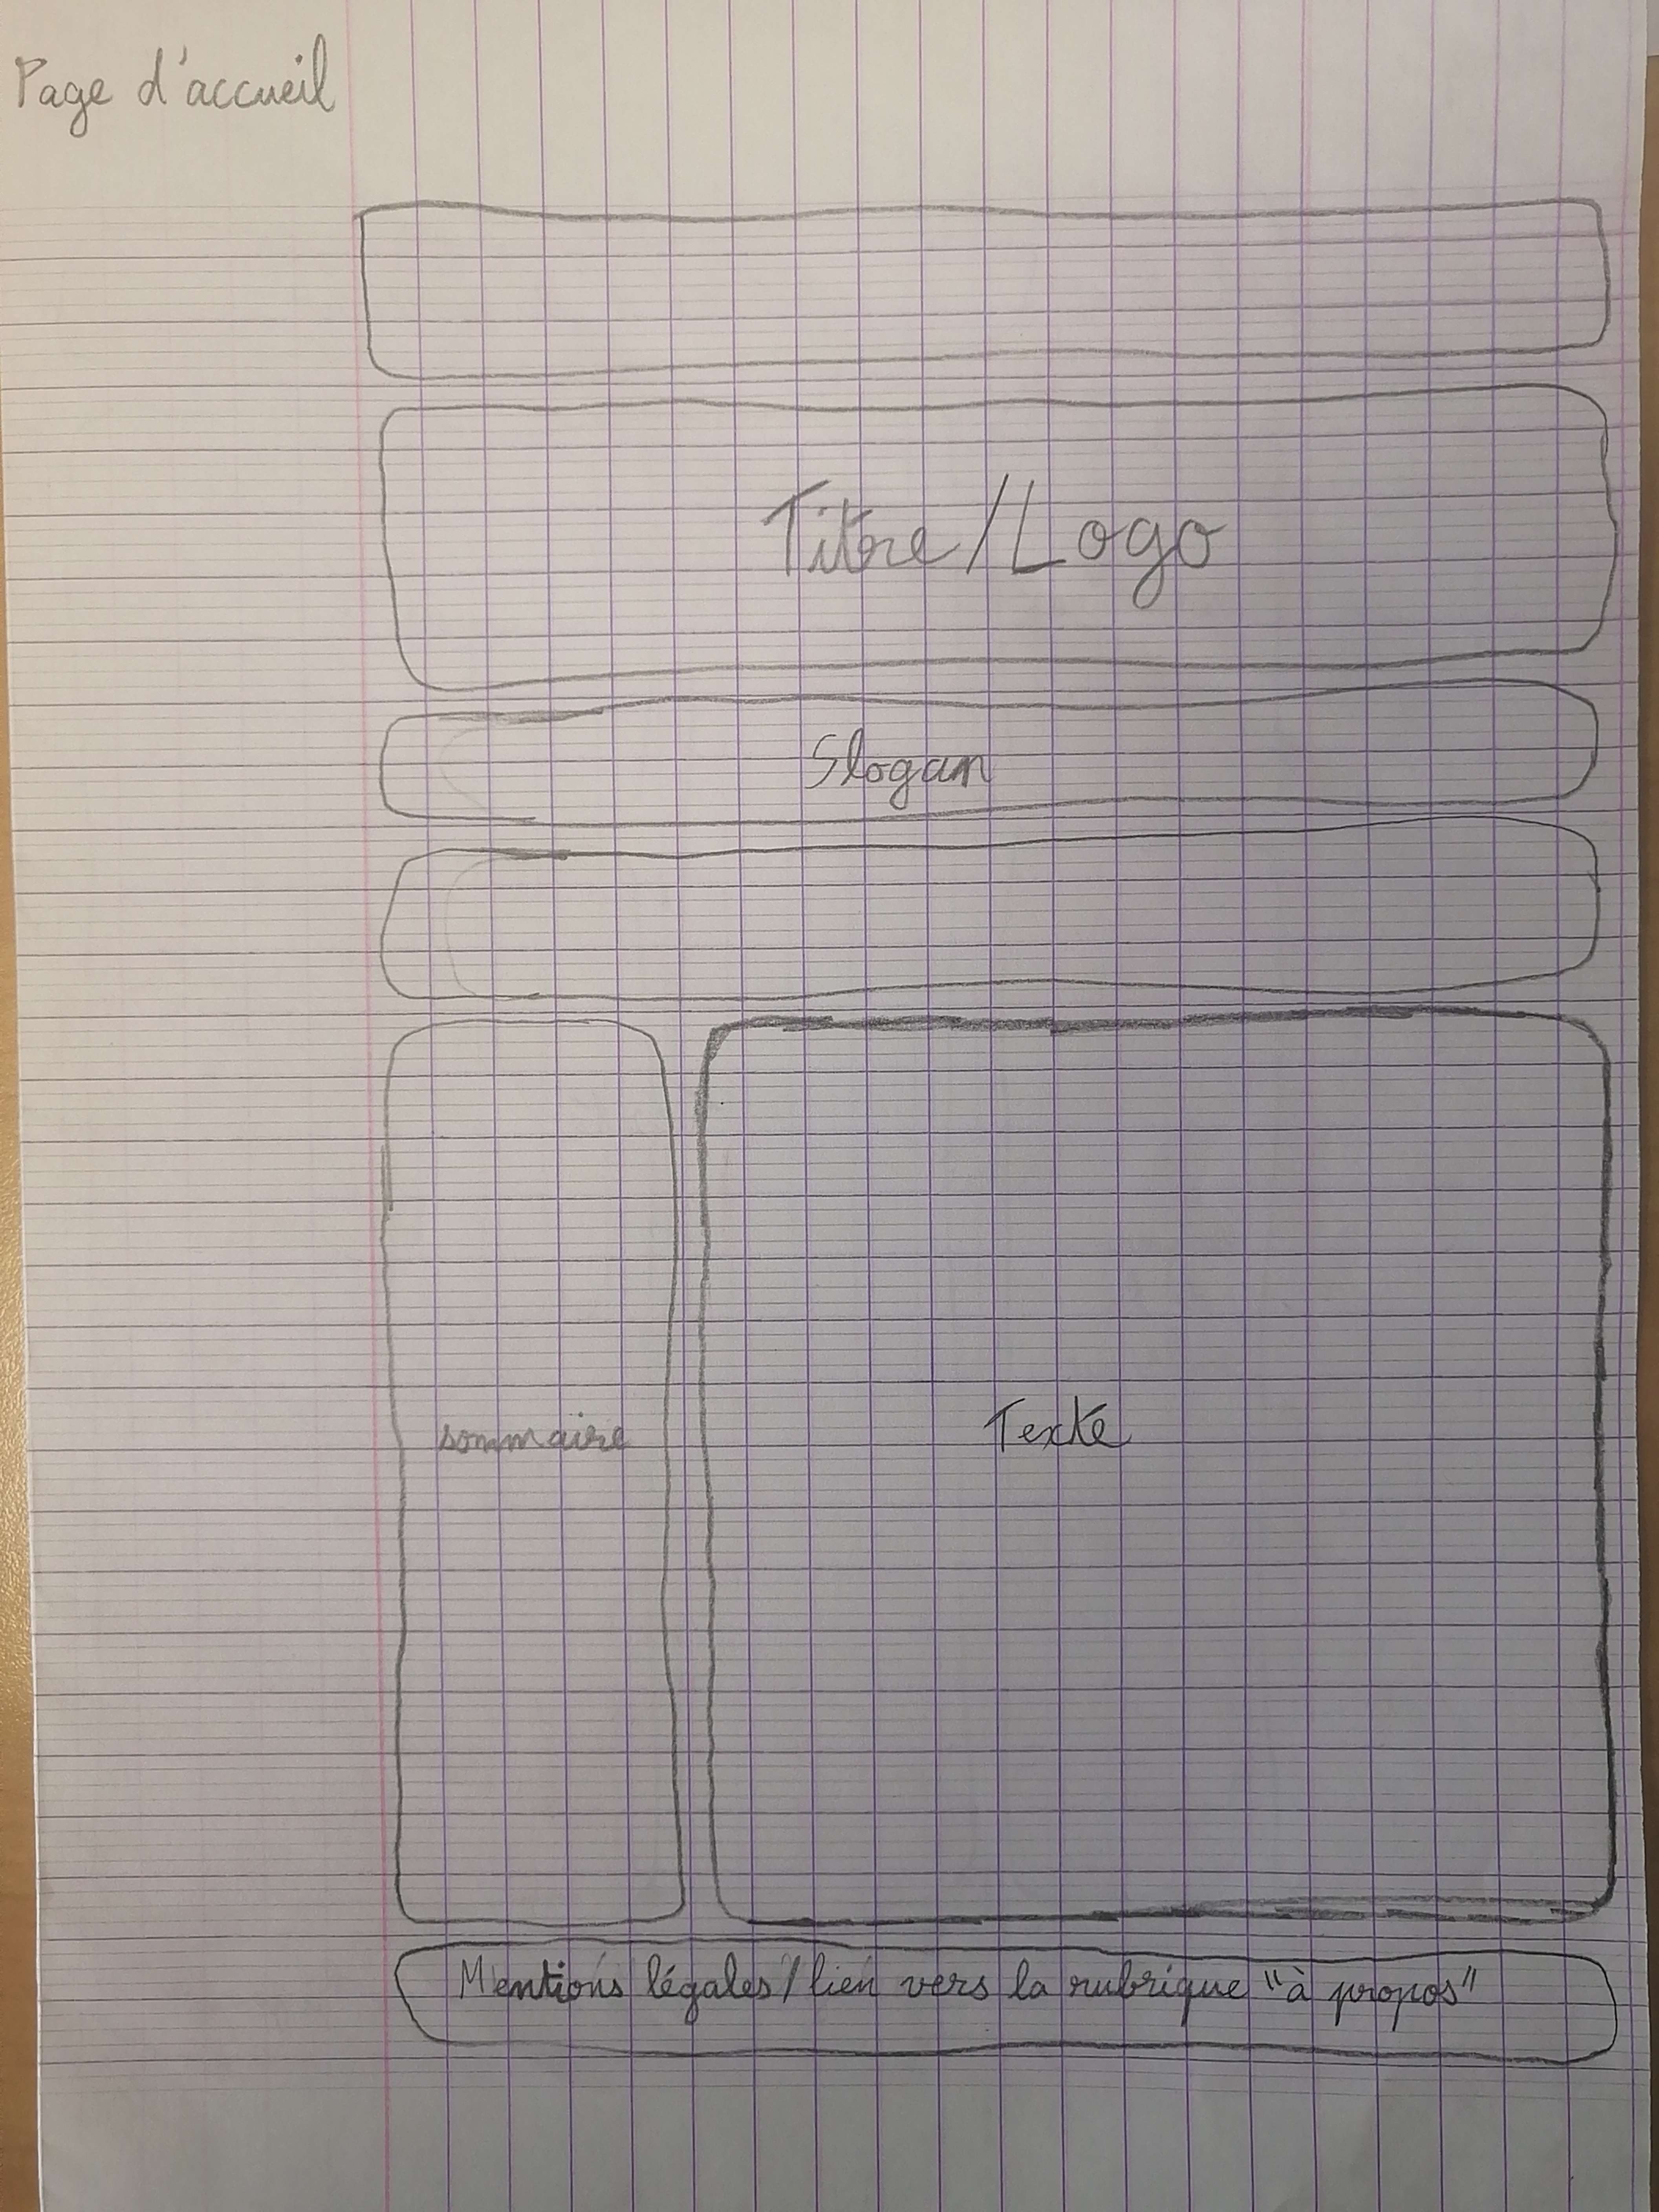 Page d'accueil
Titre/Logo
Slogan
sommaire
Texte
Mentions légales/lien vers la rubrique "à propos"